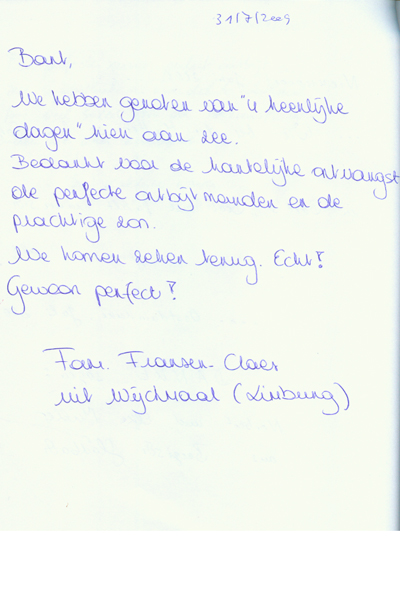 31/7/2009
Bart,
We hebben genoten van "u heerlijke
dagen" hier aan zee.
Bedankt voor de hartelijke ontvangst
de perfecte ontbijtmanden en de
prachtige zon.
We komen zeker terug. Echt!
Gewoon perfect!
Fam. Fransen-Claes
uit Wijchmaal (Limburg)